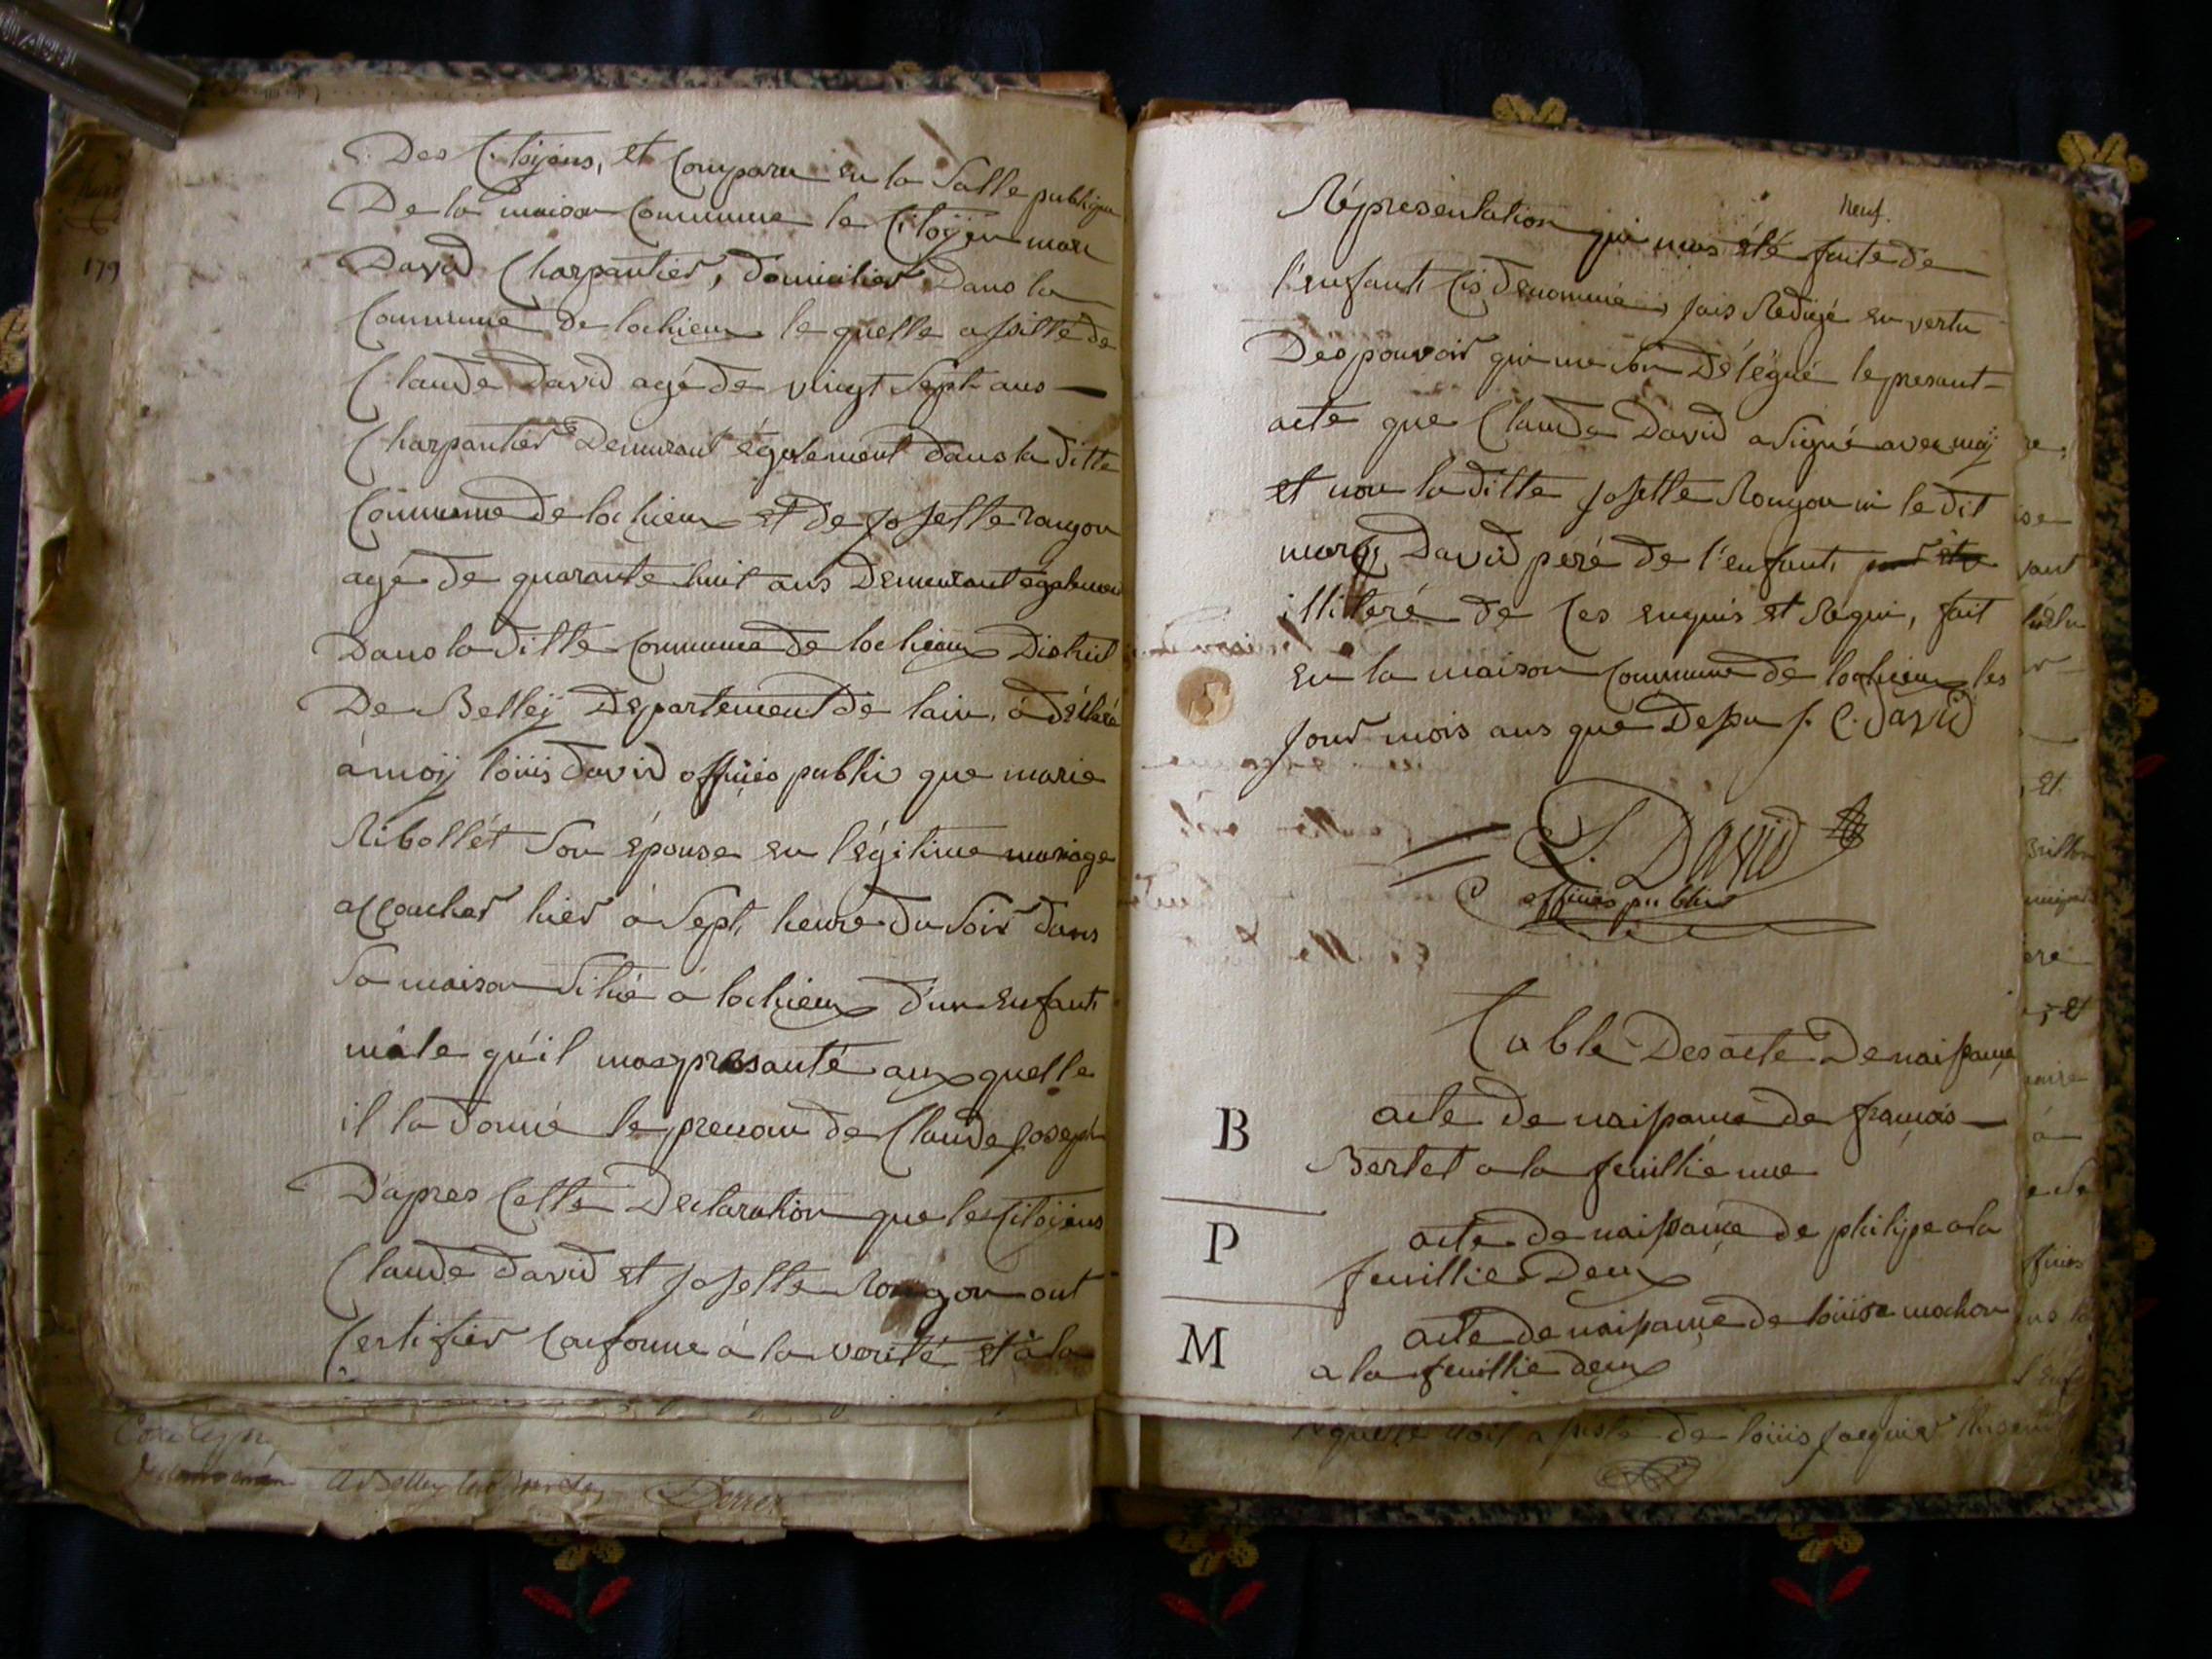 Des Citoÿens, et Comparu en la Salle publique
De la maison Commune le Citoÿen marc
David Charpantier, domicilier Dans la
Commune de lochieux le quelle assisté de
Claude David agé de vingt Sept ans
Charpantier Demurant également dans la ditte
Commune de lochieux et de josette rougon
agé de quarante huit ans Demeurant egalement
Dans la ditte Commune de lochieux District
De Belleÿ Departement de lain, à déclaré
à moÿ loüis David officiés public que marie
Ribollét Son épouse en légitime mariage
accoucher hier à Sept heure du Soir dans
Sa maison Sitüé à lochieux d'un Enfant
mâle qu'il mas presanté aux quelle
il la donné le prenom de Claude joseph
D'apres Cette Declaration que les Citoÿens
Claude David et josette Rougon ont
Certifier Conforme à la verité et à la
neuf.
Répresentation qui mas été faite de
l'enfant Cis denommé, jais Redigé en vertu
Des pouvoir qui me son Délégué le presant
acte que Claude David a Signé avec moÿ
et non la ditte josette Rougon ni le dit
marc David peré de l'enfant pour être
illiteré de Ces enquis et Requi, fait
en la maison Commune de lochieux les
jour mois ans que Dessus /. C. David
L. David
officiés public
Table Des acte De naissance
B acte de naissance de françois
Bertet a la feuillie une
P acte de naissance de philipe a la
feuillie Deux
M acte de naissance de loüise mochon
a la feuillie deux